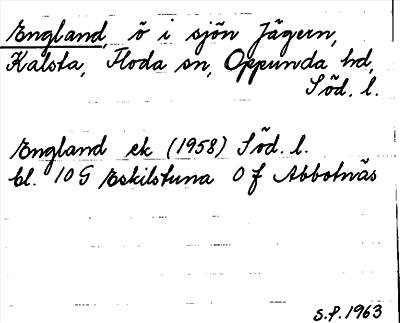 England, ö i sjön Jägern,
Kalsta, Floda sn, Oppunda hd,
Söd. l.
England ek (1958) Söd. l.
bl. 10 G Eskilstuna 0 f Abbotnäs
S.P. 1963